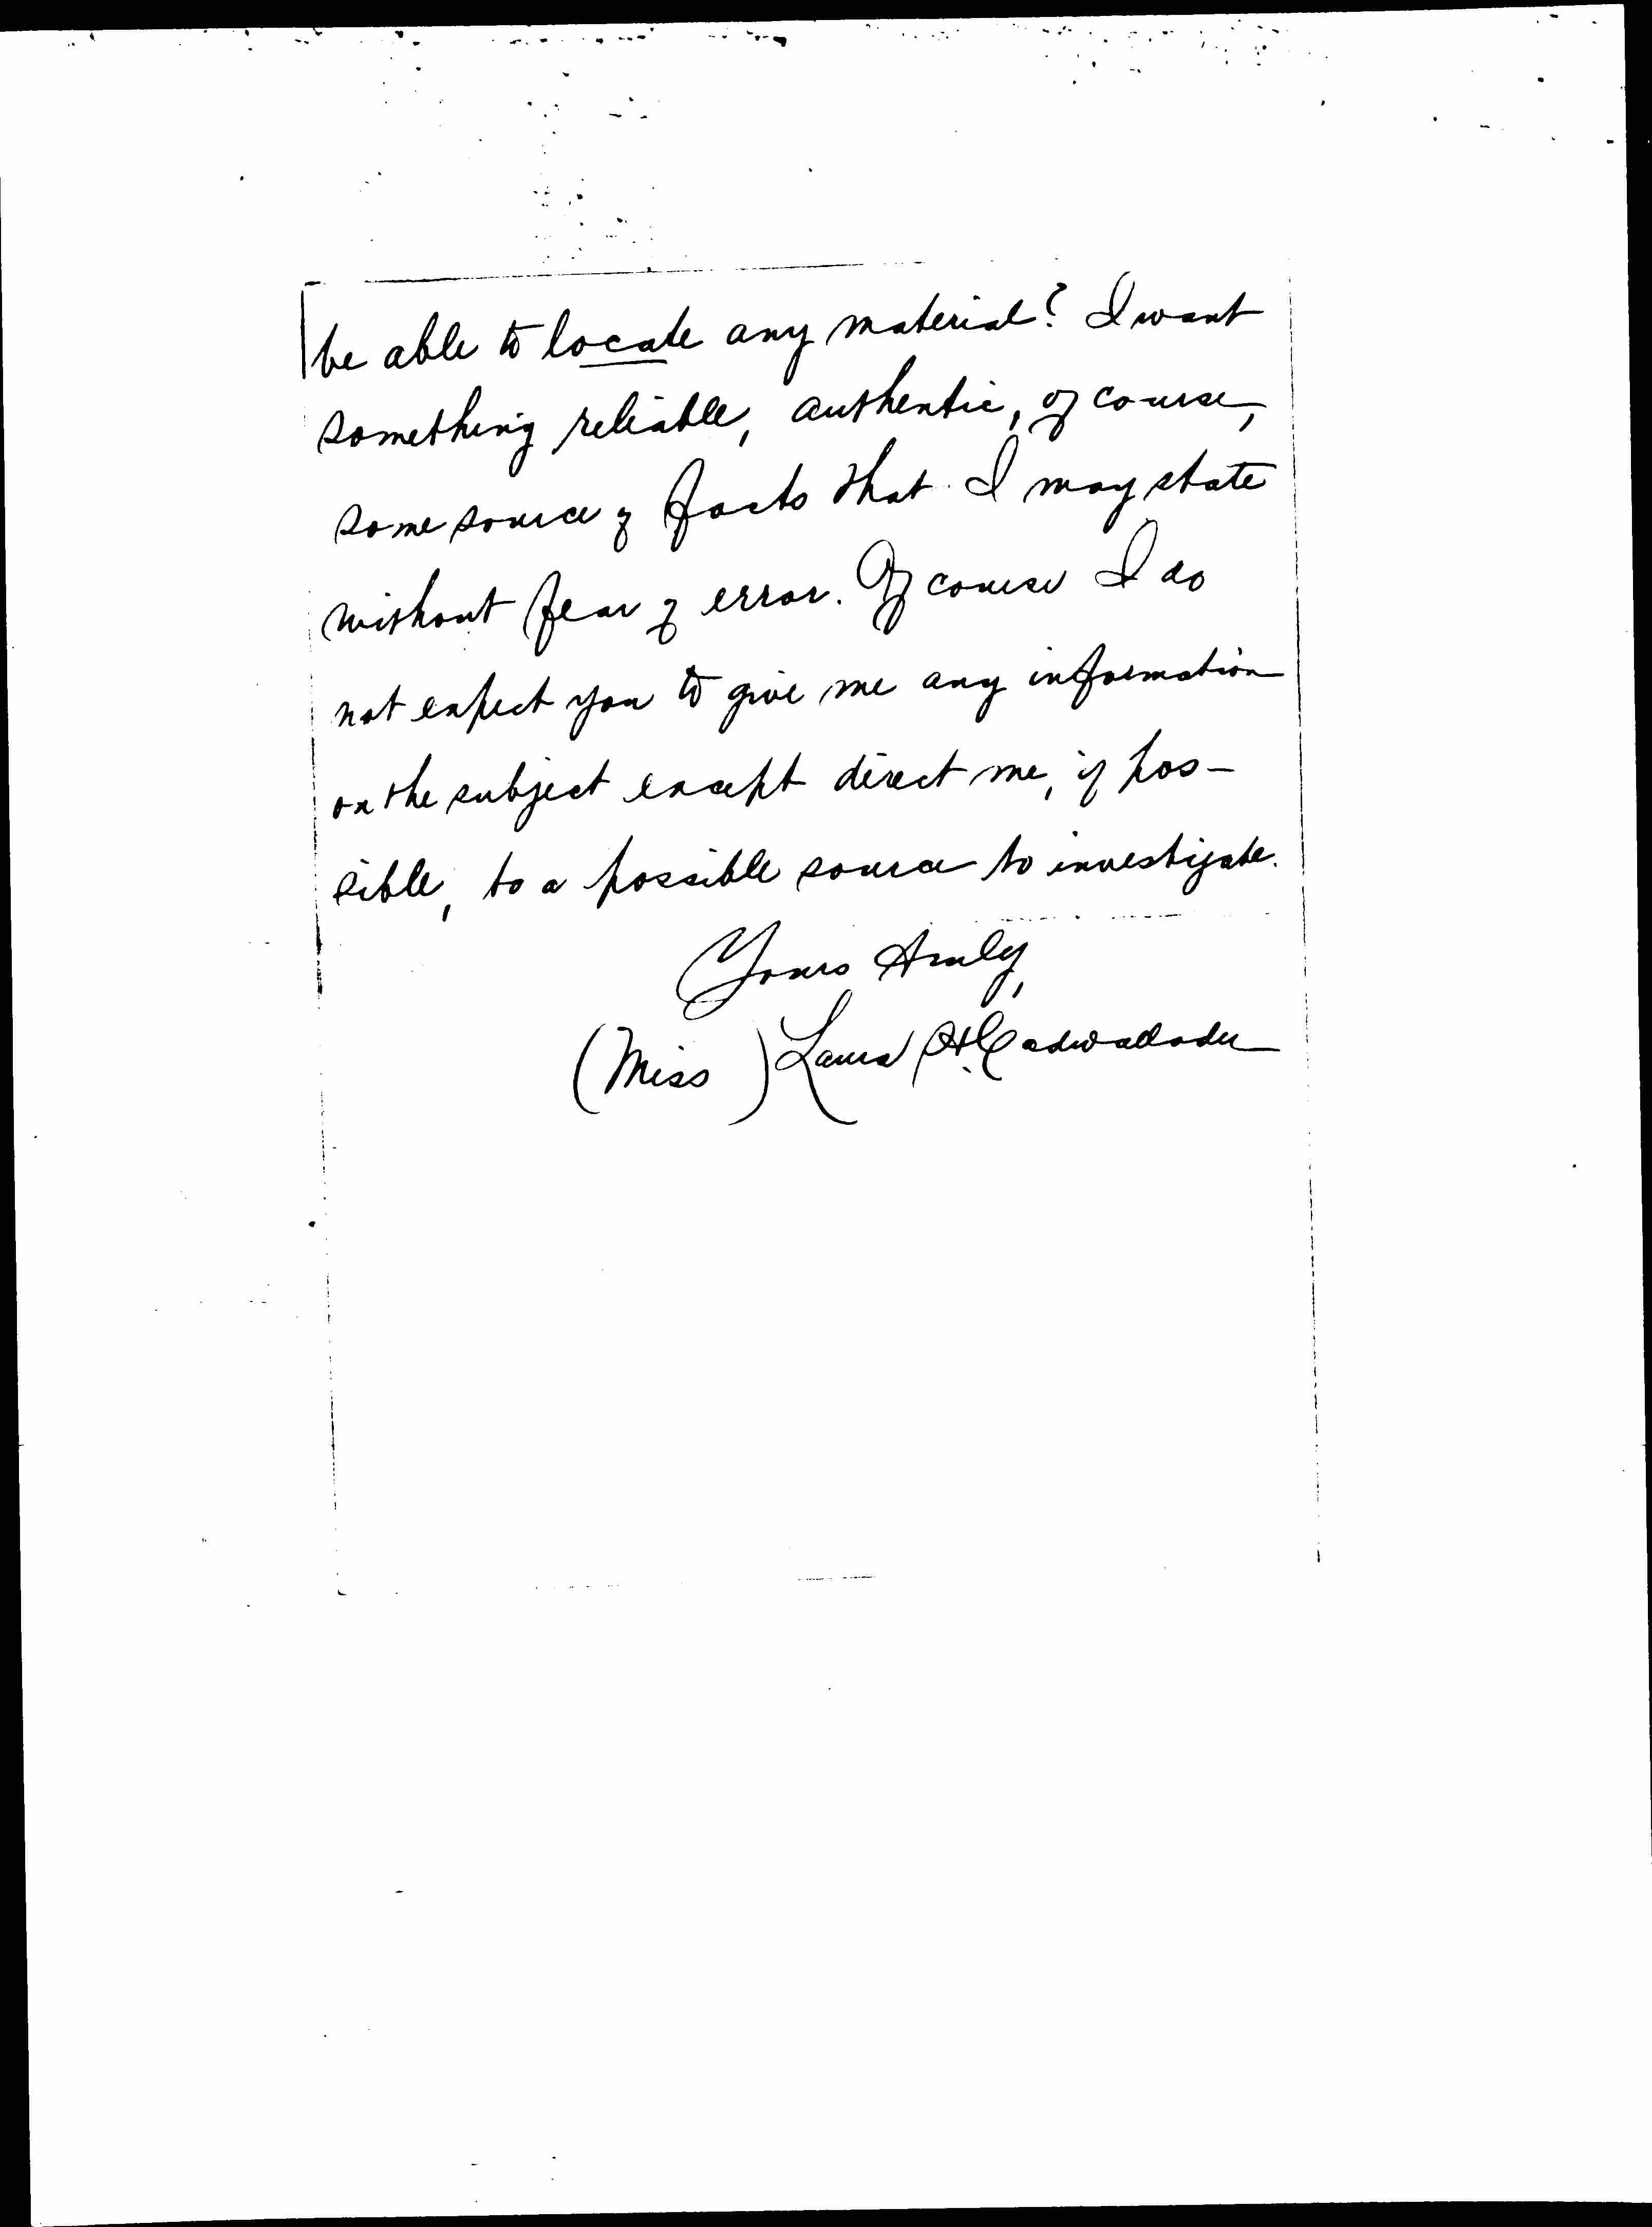 be able to locate any material? I want
something reliable, authentic, of course,
some source of facts that I may state
without fear of error. Of course I do
not expect you to give me any information
on the subject except direct me, if pos-
sible, to a possible source to investigate.
Yours truly,
(Miss) Laura H. Cadwallader